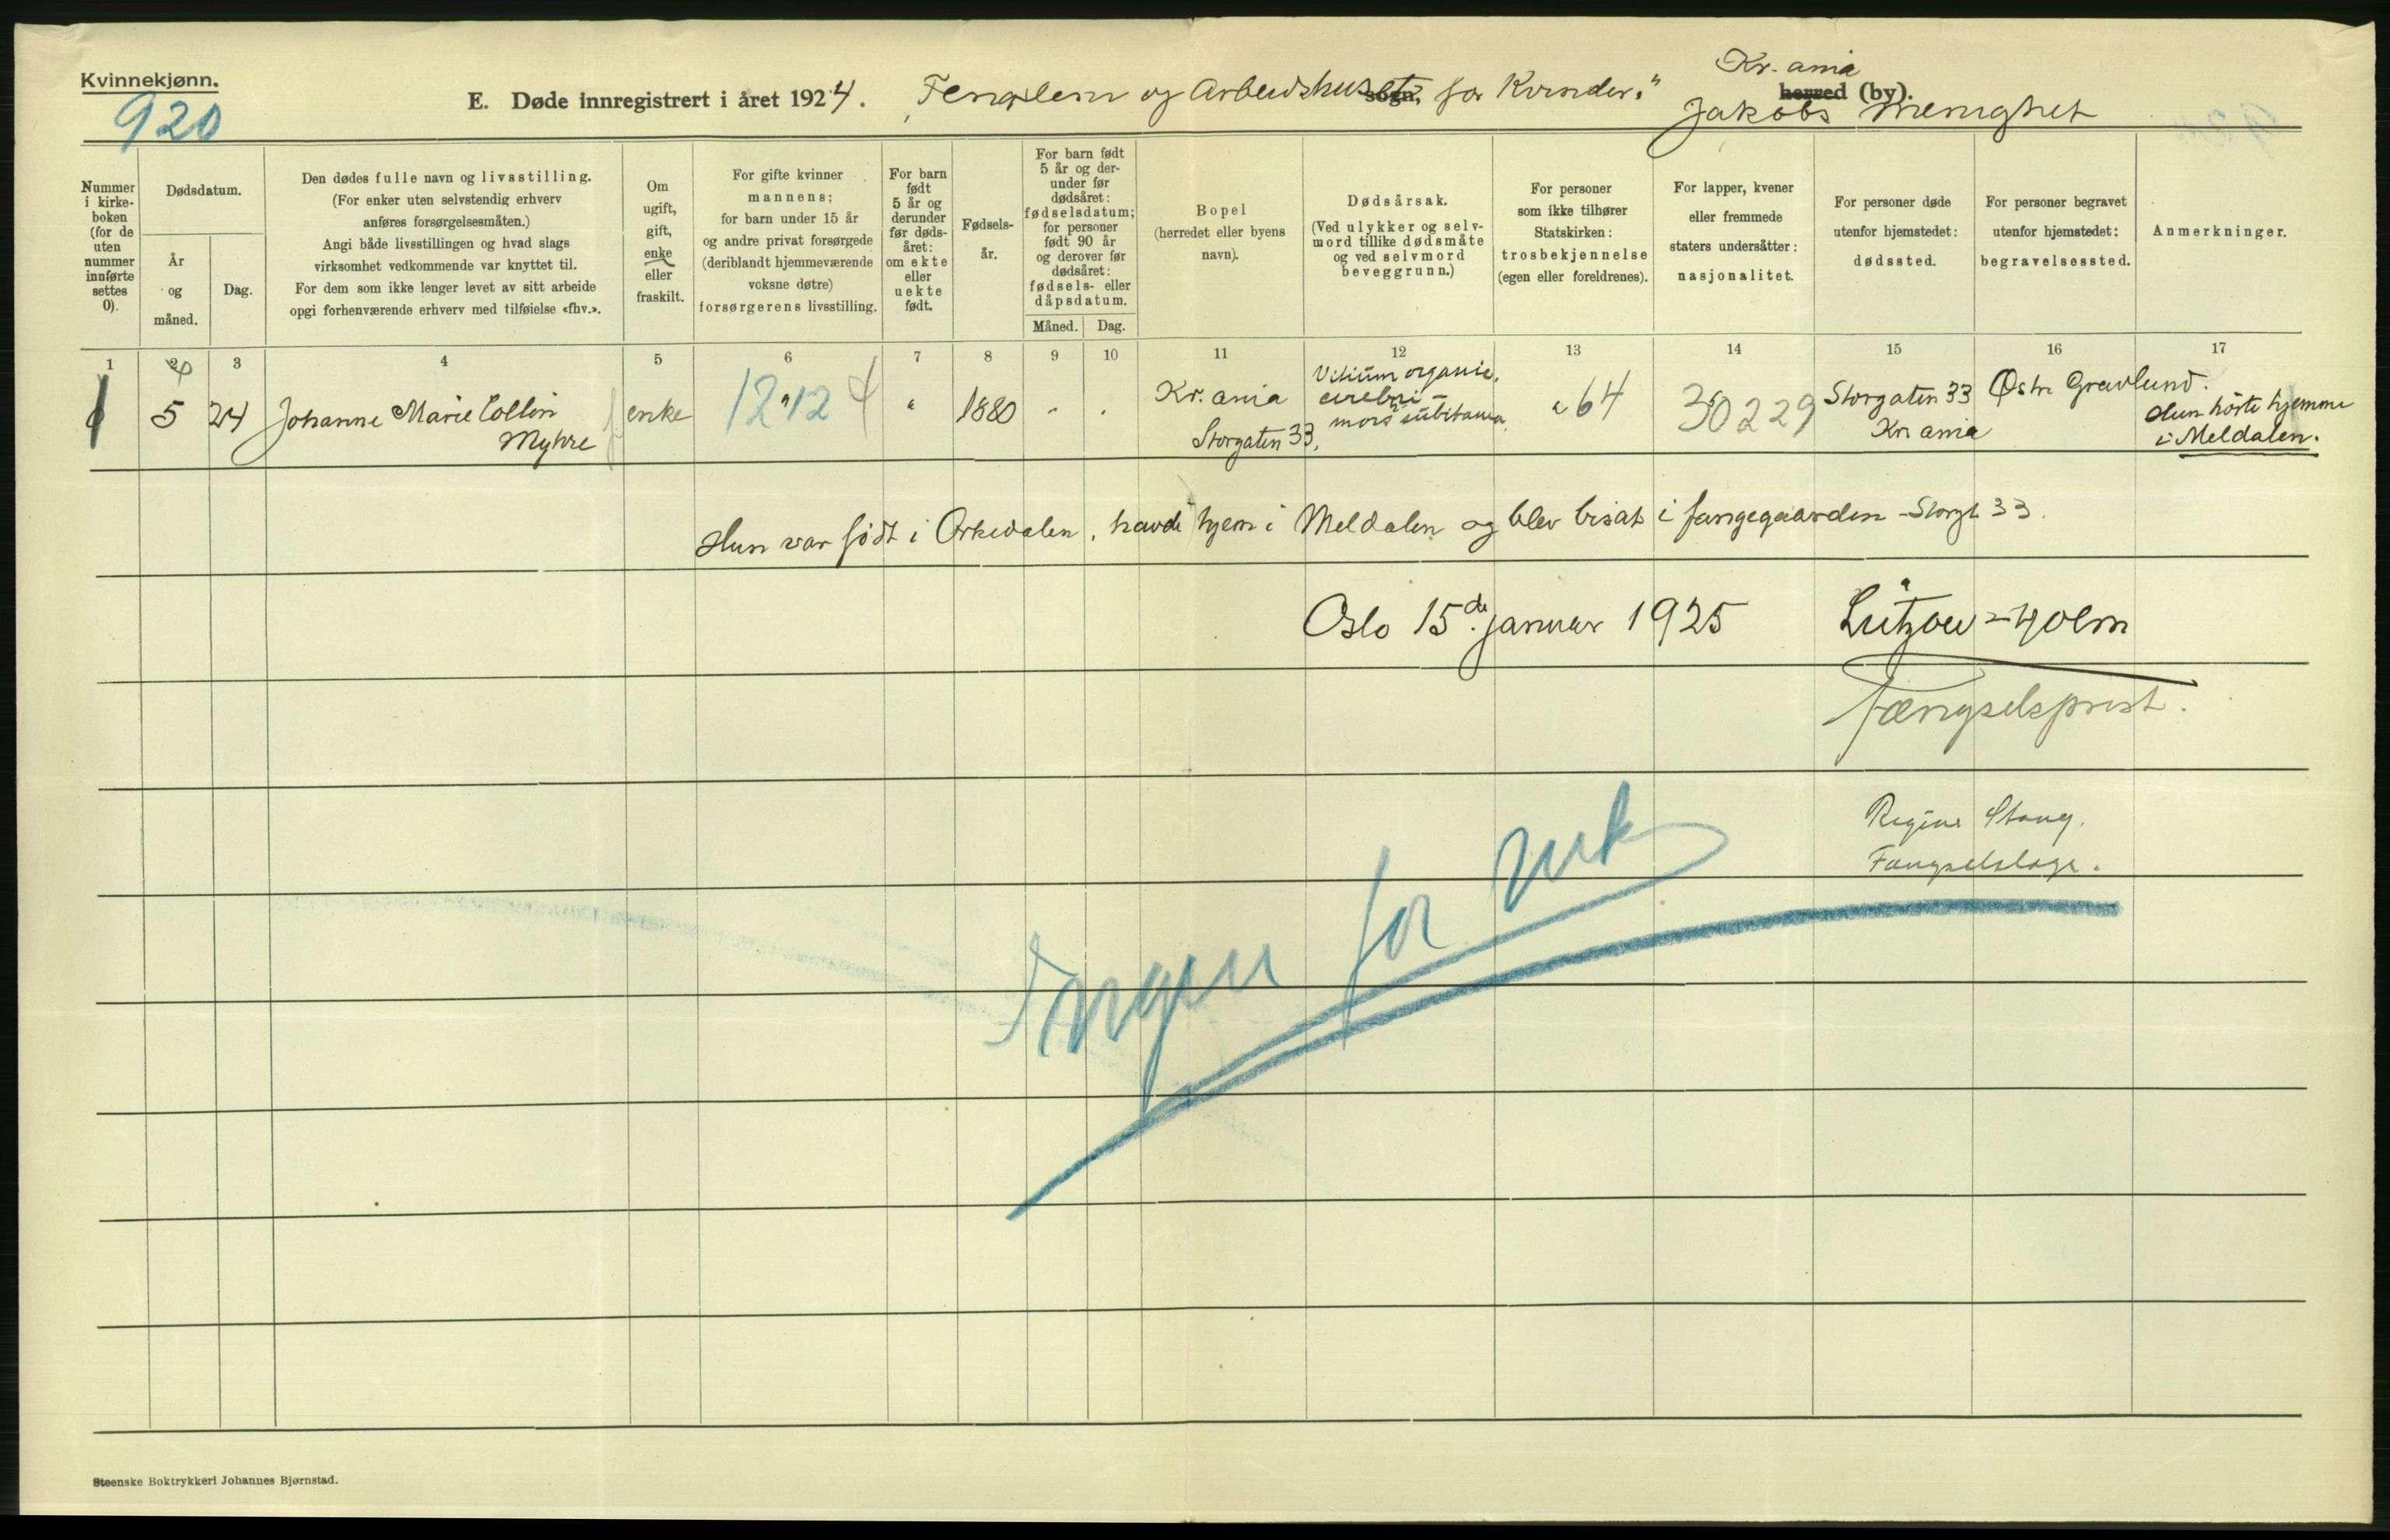 Kvinnekjønn.
920
E. Døde innregistrert i året 1924. "Fengslem og Arbeidshuset sogn, for Kvinder." Kr.ania herred (by).
Jakobs Menighet
Nummer i kirke-boken (for de uten nummer innførte settes 0).
Dødsdatum.
År og måned.
Dag.
Den dødes fulle navn og livsstilling.
(For enker uten selvstendig erhverv
anføres forsørgelsesmåten.)
Angi både livsstillingen og hvad slags
virksomhet vedkommende var knyttet til.
For dem som ikke lenger levet av sitt arbeide
opgi forhenværende erhverv med tilføielse «fhv.».
Om ugift, gift, enke eller fraskilt.
For gifte kvinner
mannens;
for barn under 15 år
og andre privat forsørgede
(deriblandt hjemmeværende
voksne døtre)
forsørgerens livsstilling.
For barn født 5 år og derunder før døds-året: om ekte eller uekte født.
Fødsels-år.
For barn født
5 år og der-
under før
dødsåret:
fødselsdatum;
for personer
født 90 år
og derover før
dødsåret:
fødsels- eller
dåpsdatum.
Måned. Dag.
Bopel
(herredet eller byens
navn).
Dødsårsak.
(Ved ulykker og selv-
mord tillike dødsmåte
og ved selvmord
beveggrunn.)
For personer
som ikke tilhører
Statskirken:
trosbekjennelse
(egen eller foreldrenes).
For lapper, kvener
eller fremmede
staters undersåtter:
nasjonalitet.
For personer døde
utenfor hjemstedet:
dødssted.
For personer begravet
utenfor hjemstedet:
begravelsessted.
Anmerkninger.
1 2 3 4 5 6 7 8 9 10 11 12 13 14 15 16 17
1 5 24 Johanne Marie Collin
Myhre
enke
12 " 12 4
"
1880
"
"
Kr.ania
Storgaten 33.
Vitium organic.
cerebri -
mors subitanea
" 64
30229
Storgaten 33
Kr.ania
Østre Gravlund.
Hun hørte hjemme
i Meldalen.
Hun var født i Orkedalen, havde hjem i Meldalen og blev bisat i fangegaarden - Storgt 33.
Oslo 15de januar 1925 Lützow-Holm
fængselsprest.
Regine Stang.
Fængselslæge.
Ingen for ruk
Steenske Boktrykkeri Johannes Bjørnstad.